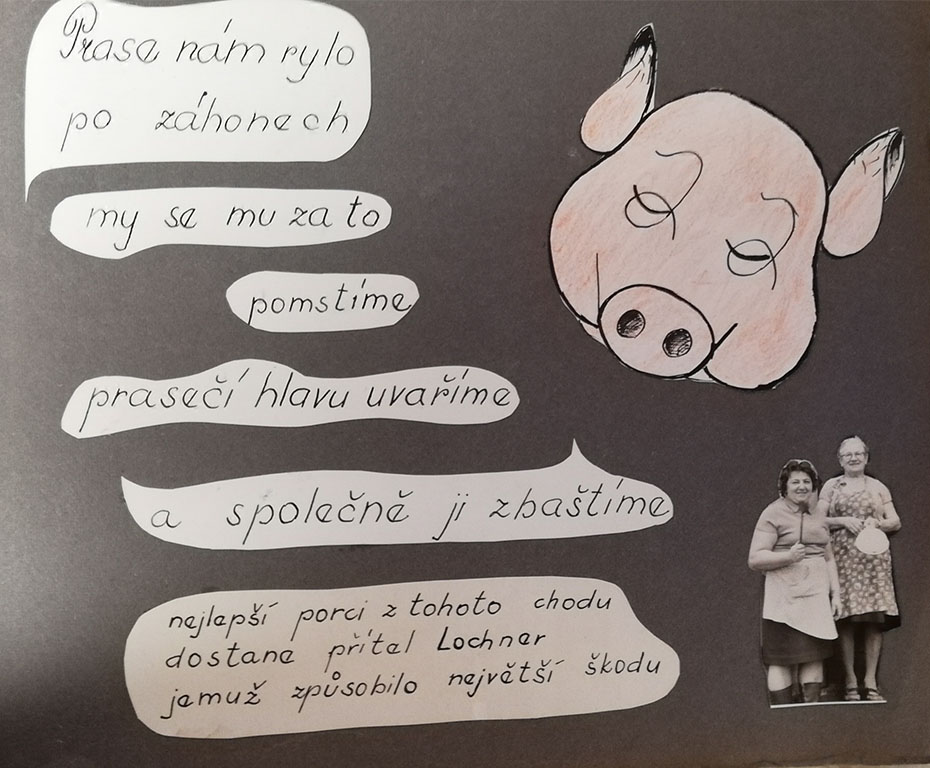 Prase nám rylo
po záhonech
my se mu za to
pomstíme
prasečí hlavu uvaříme
a společně ji zbaštíme
nejlepší porci z tohoto chodu
dostane přítel Lochner
jemuž způsobilo největší škodu